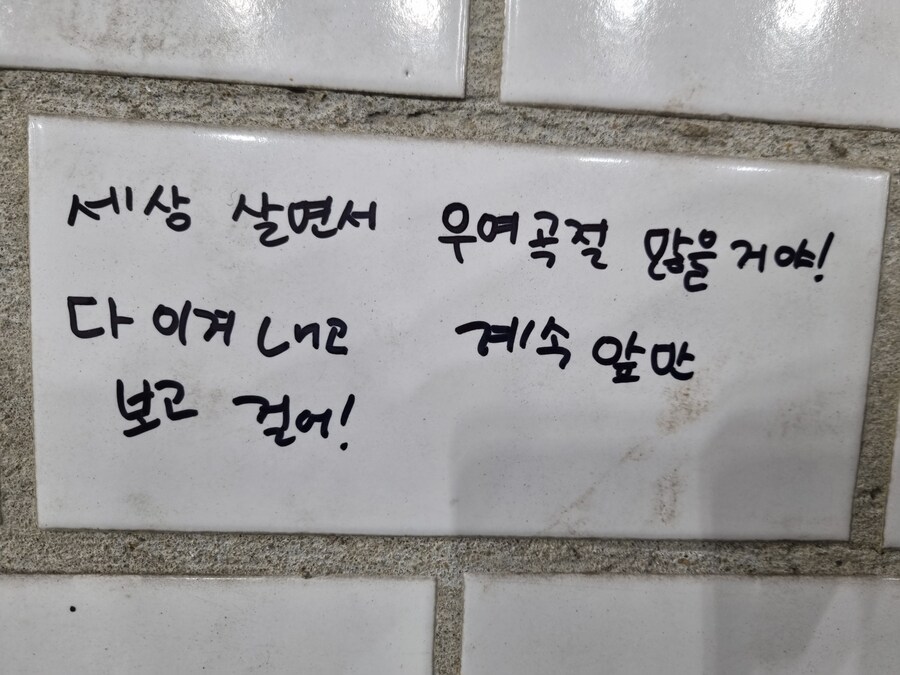 세상 살면서 우여곡절 많을거야!
다 이겨내고 계속 앞만
보고 걸어!